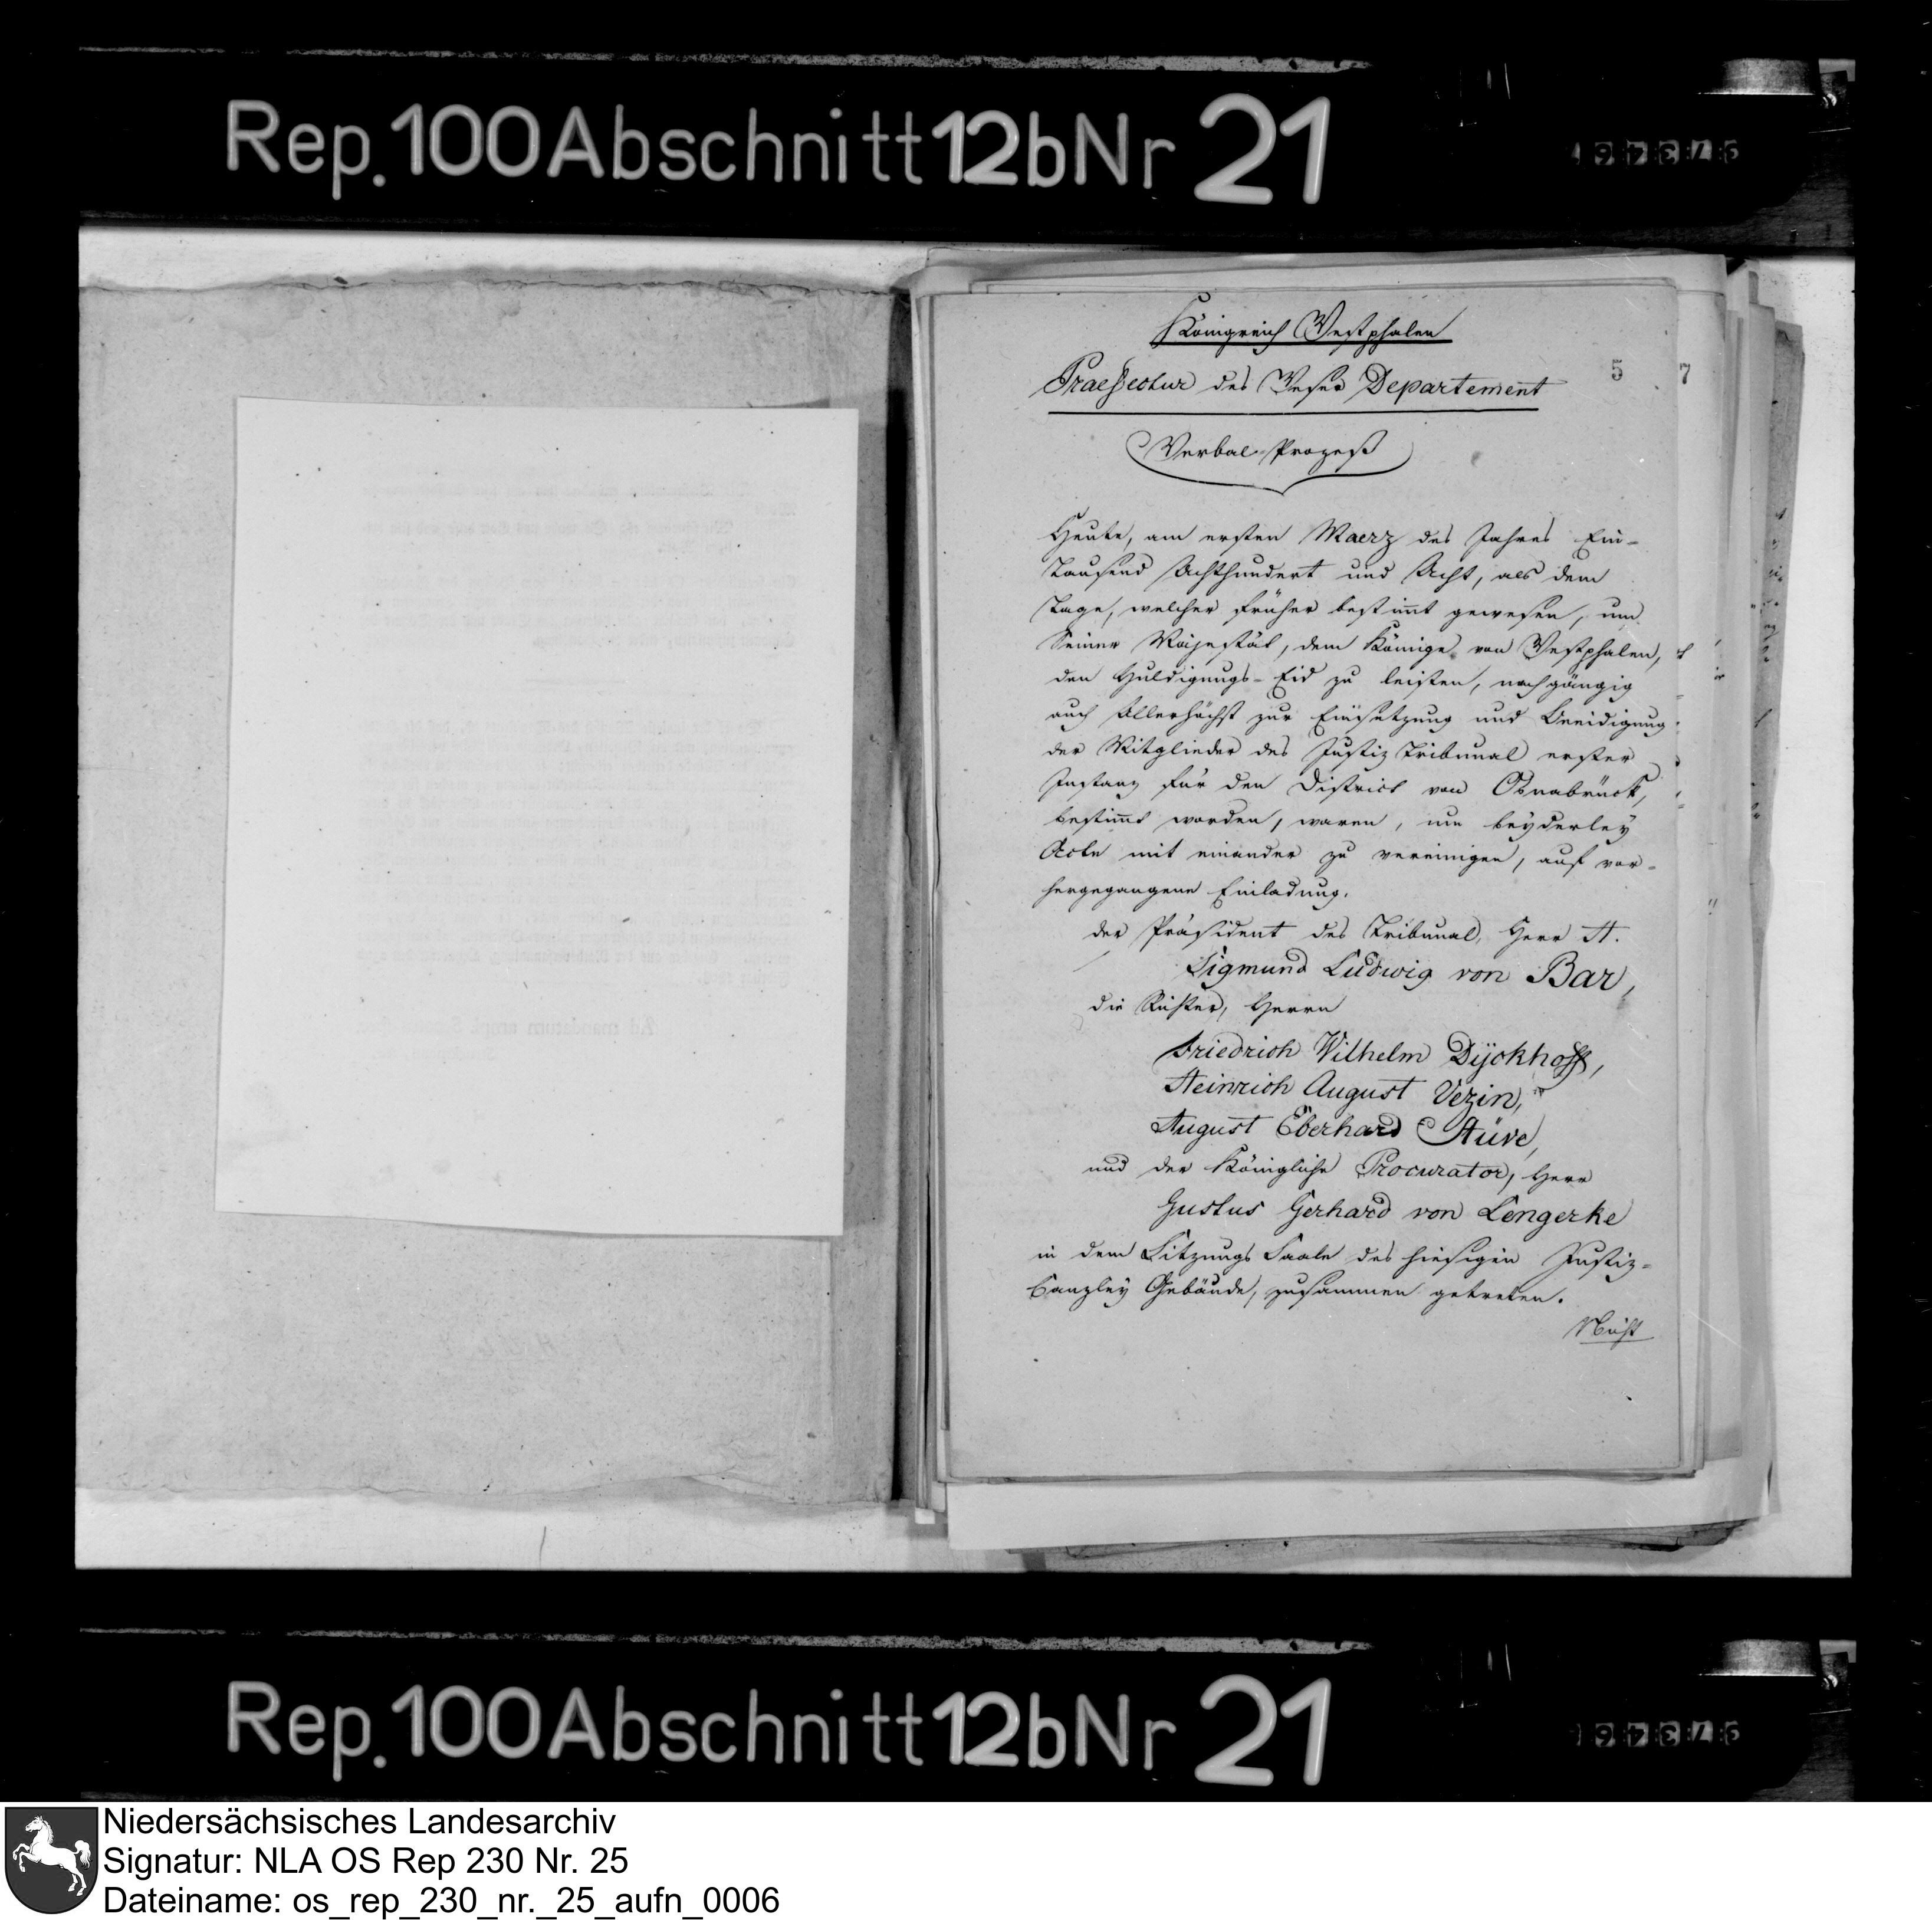 Rep. 100 Abschnitt 12b Nr 21
Königreich Westphalen
Praefectur des Weser Departement
5 7
Verbal-Prozeß
Heute, am ersten Maerz des Jahres Ein-
tausend Achthundert und Acht, als dem
Tage, welcher früher bestimt gewesen, um
Seiner Majestät, dem Könige von Westphalen,
den Huldigungs-Eid zu leisten, nachgängig
auch Allerhöchst zur Einsetzung und Beeidigung
der Mitglieder des Justiz Tribunal erster
Instanz für den District von Osnabrück,
bestimt worden, waren, um beyderley
Acte mit einander zu vereinigen, auf vor-
hergegangene Einladung.
der Präsident des Tribunal, Herr H.
Sigmund Ludwig von Bar,
die Richter, Herrn
Friedrich Wilhelm Dyckhoff,
Heinrich August Vezin,
August Eberhard Stüve,
und der Königliche Procurator, Herr
Justus Gerhard von Lengerke
in dem Sitzungs Saale des hiesigen Justiz-
Canzley Gebäude, zusammen getreten.
Nicht
Rep. 100 Abschnitt 12b Nr 21
Niedersächsisches Landesarchiv
Signatur: NLA OS Rep 230 Nr. 25
Dateiname: os_rep_230_nr._25_aufn_0006